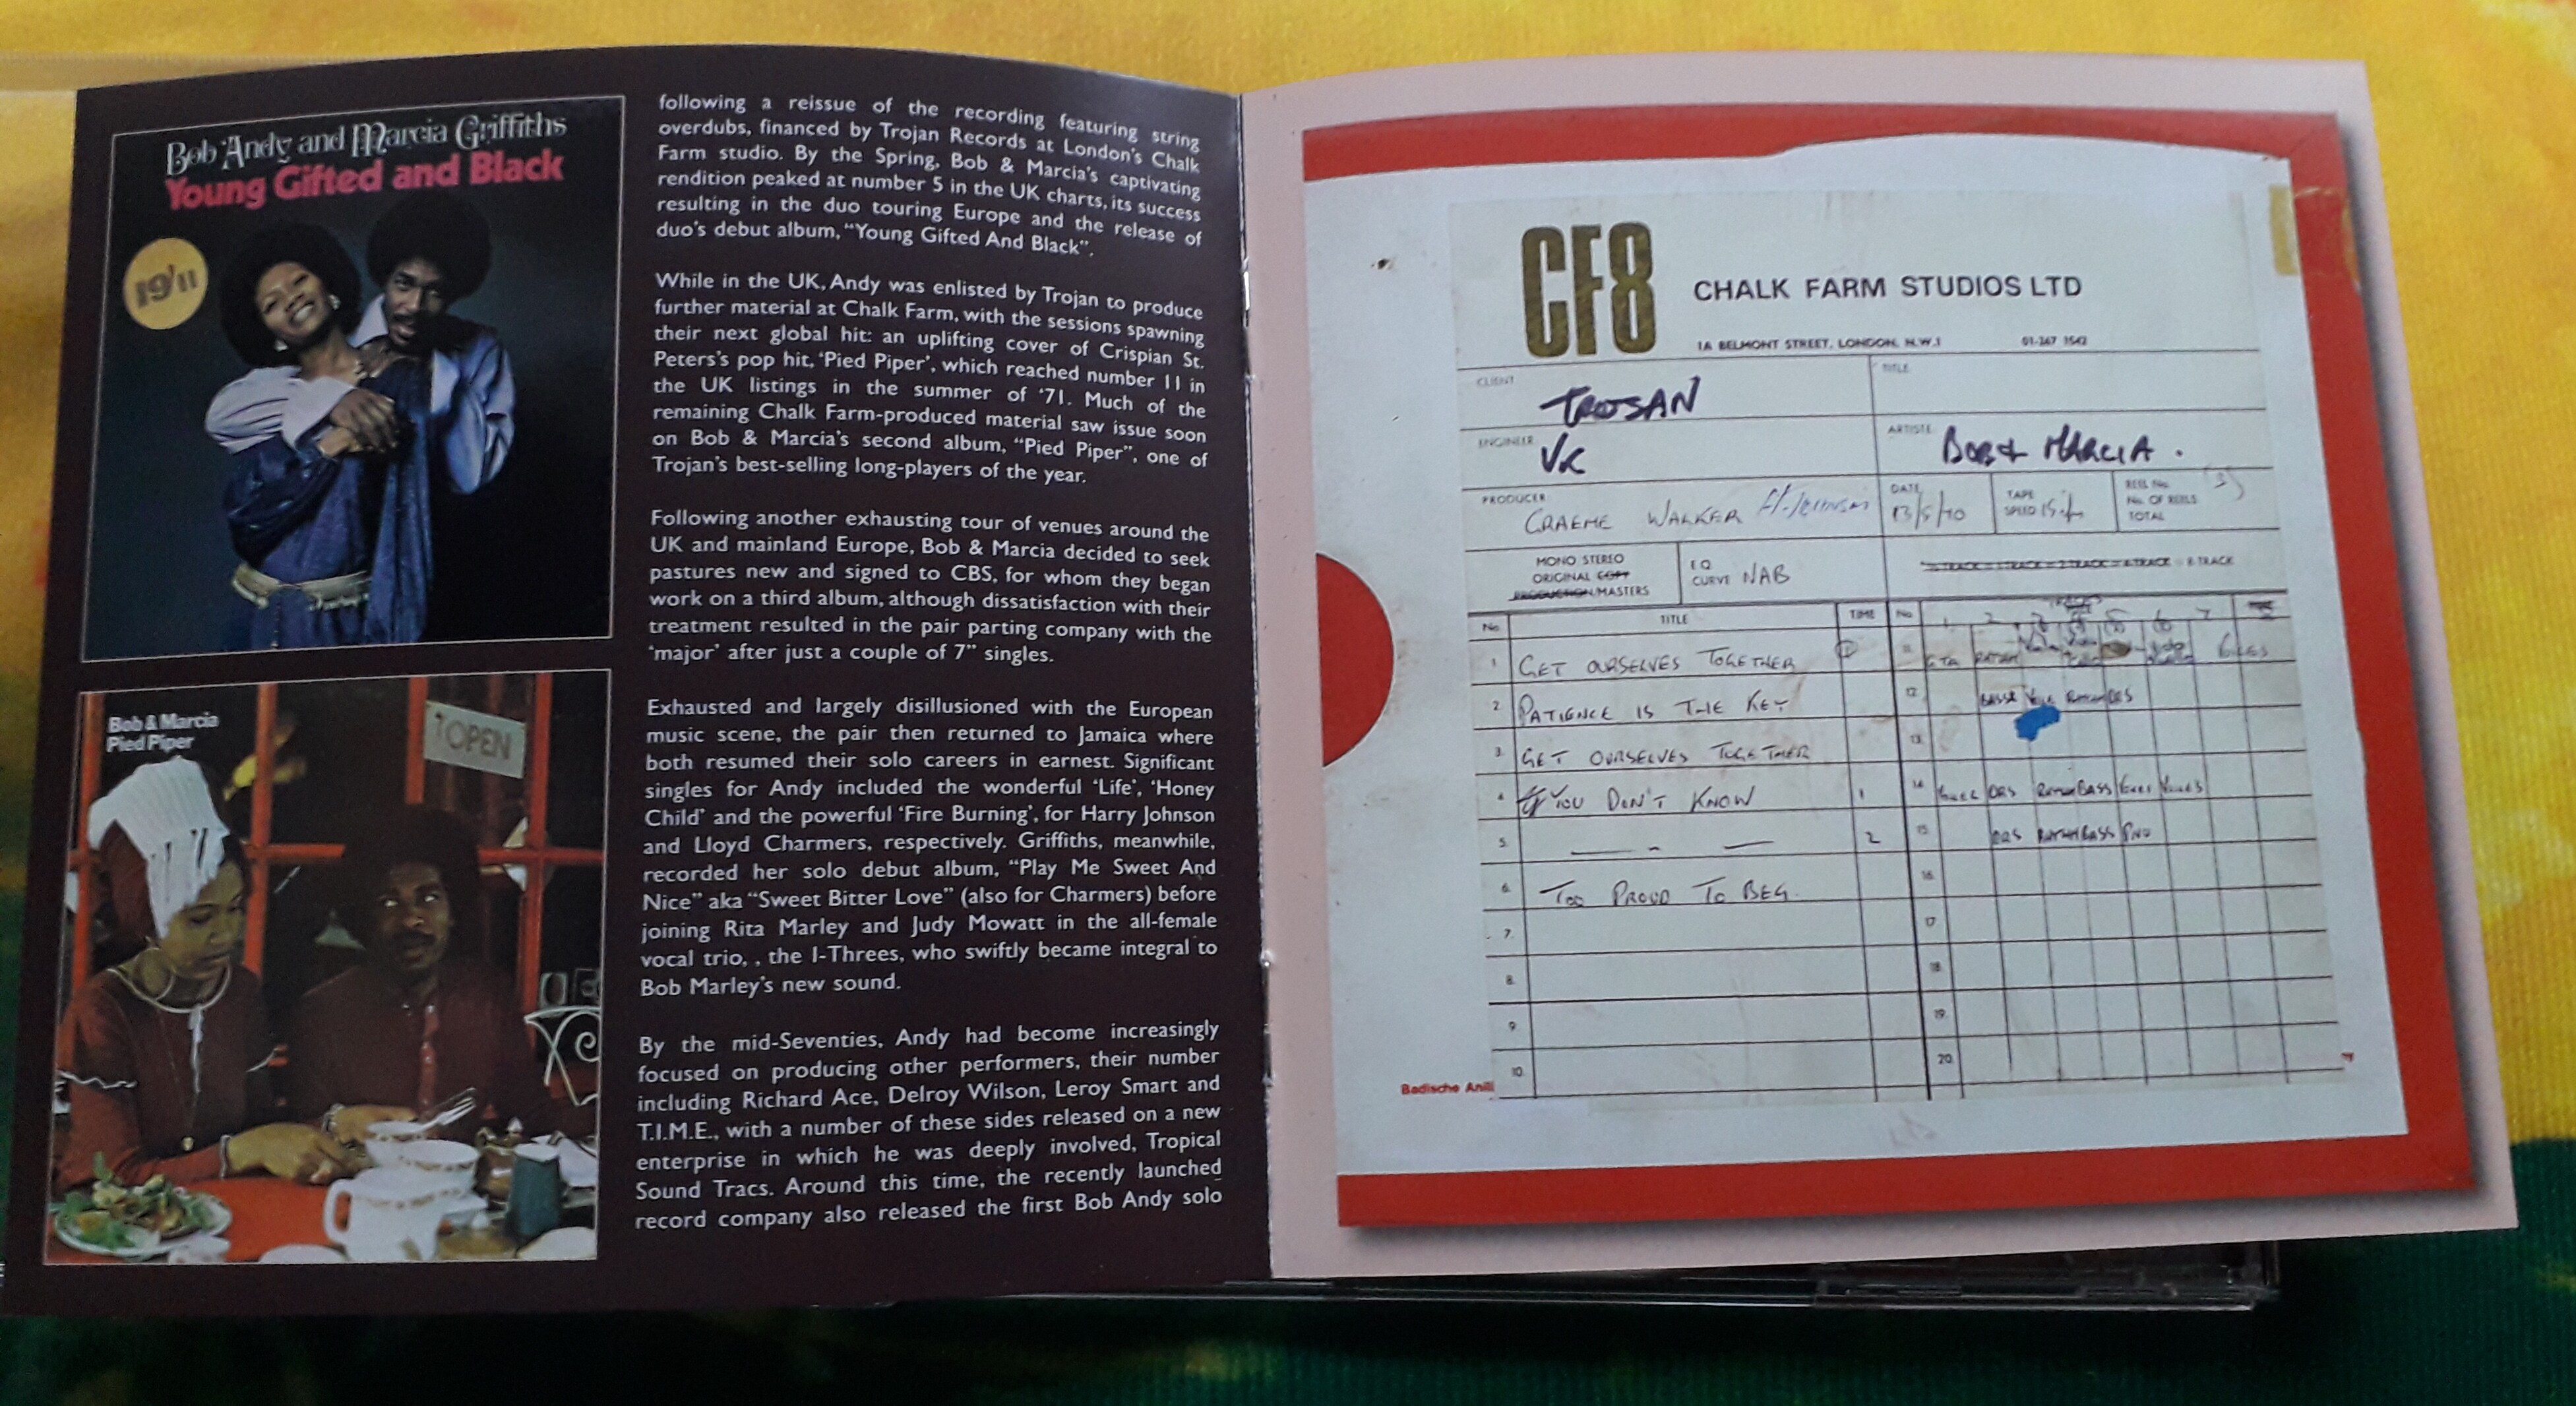 Bob Andy and Marcia Griffiths
Young Gifted and Black
19'11
Bob & Marcia
Pied Piper
OPEN
following a reissue of the recording featuring string
overdubs, financed by Trojan Records at London's Chalk
Farm studio. By the Spring, Bob & Marcia's captivating
rendition peaked at number 5 in the UK charts, its success
resulting in the duo touring Europe and the release of
duo's debut album, “Young Gifted And Black”.
While in the UK, Andy was enlisted by Trojan to produce
further material at Chalk Farm, with the sessions spawning
their next global hit: an uplifting cover of Crispian St.
Peters's pop hit, ‘Pied Piper’, which reached number 11 in
the UK listings in the summer of ‘71. Much of the
remaining Chalk Farm-produced material saw issue soon
on Bob & Marcia's second album, “Pied Piper”, one of
Trojan's best-selling long-players of the year.
Following another exhausting tour of venues around the
UK and mainland Europe, Bob & Marcia decided to seek
pastures new and signed to CBS, for whom they began
work on a third album, although dissatisfaction with their
treatment resulted in the pair parting company with the
‘major’ after just a couple of 7” singles.
Exhausted and largely disillusioned with the European
music scene, the pair then returned to Jamaica where
both resumed their solo careers in earnest. Significant
singles for Andy included the wonderful ‘Life’, ‘Honey
Child’ and the powerful ‘Fire Burning’, for Harry Johnson
and Lloyd Charmers, respectively. Griffiths, meanwhile,
recorded her solo debut album, “Play Me Sweet And
Nice” aka “Sweet Bitter Love” (also for Charmers) before
joining Rita Marley and Judy Mowatt in the all-female
vocal trio, , the I-Threes, who swiftly became integral to
Bob Marley's new sound.
By the mid-Seventies, Andy had become increasingly
focused on producing other performers, their number
including Richard Ace, Delroy Wilson, Leroy Smart and
T.I.M.E., with a number of these sides released on a new
enterprise in which he was deeply involved, Tropical
Sound Tracs. Around this time, the recently launched
record company also released the first Bob Andy solo
CF8 CHALK FARM STUDIOS LTD
1A BELMONT STREET, LONDON, N.W.1 01-267 1542
CLIENT TROJAN TITLE
ENGINEER VC ARTISTE BOB & MARCIA.
PRODUCER GRAEME WALKER H. Johnson DATE 13/5/70 TAPE SPEED 15 REEL No. (3)
No. OF REELS
TOTAL
MONO STEREO
ORIGINAL COPY
PRODUCTION/MASTERS
EQ CURVE NAB
8 TRACK
No. TITLE TIME No. TRACKS
1 2 3 4 5 6 7
1 GET OURSELVES TOGETHER 11 GTR RHYTHM
2 PATIENCE IS THE KEY 12 BASS RHYTHM DRS
3 GET OURSELVES TOGETHER 13
4 IF YOU DON'T KNOW 1 14 DRS RHYTHM BASS
5 — " — 2 15 DRS RHYTHM BASS PNO
6 TOO PROUD TO BEG. 16
7 17
8 18
9 19
10 20
Badische Anili